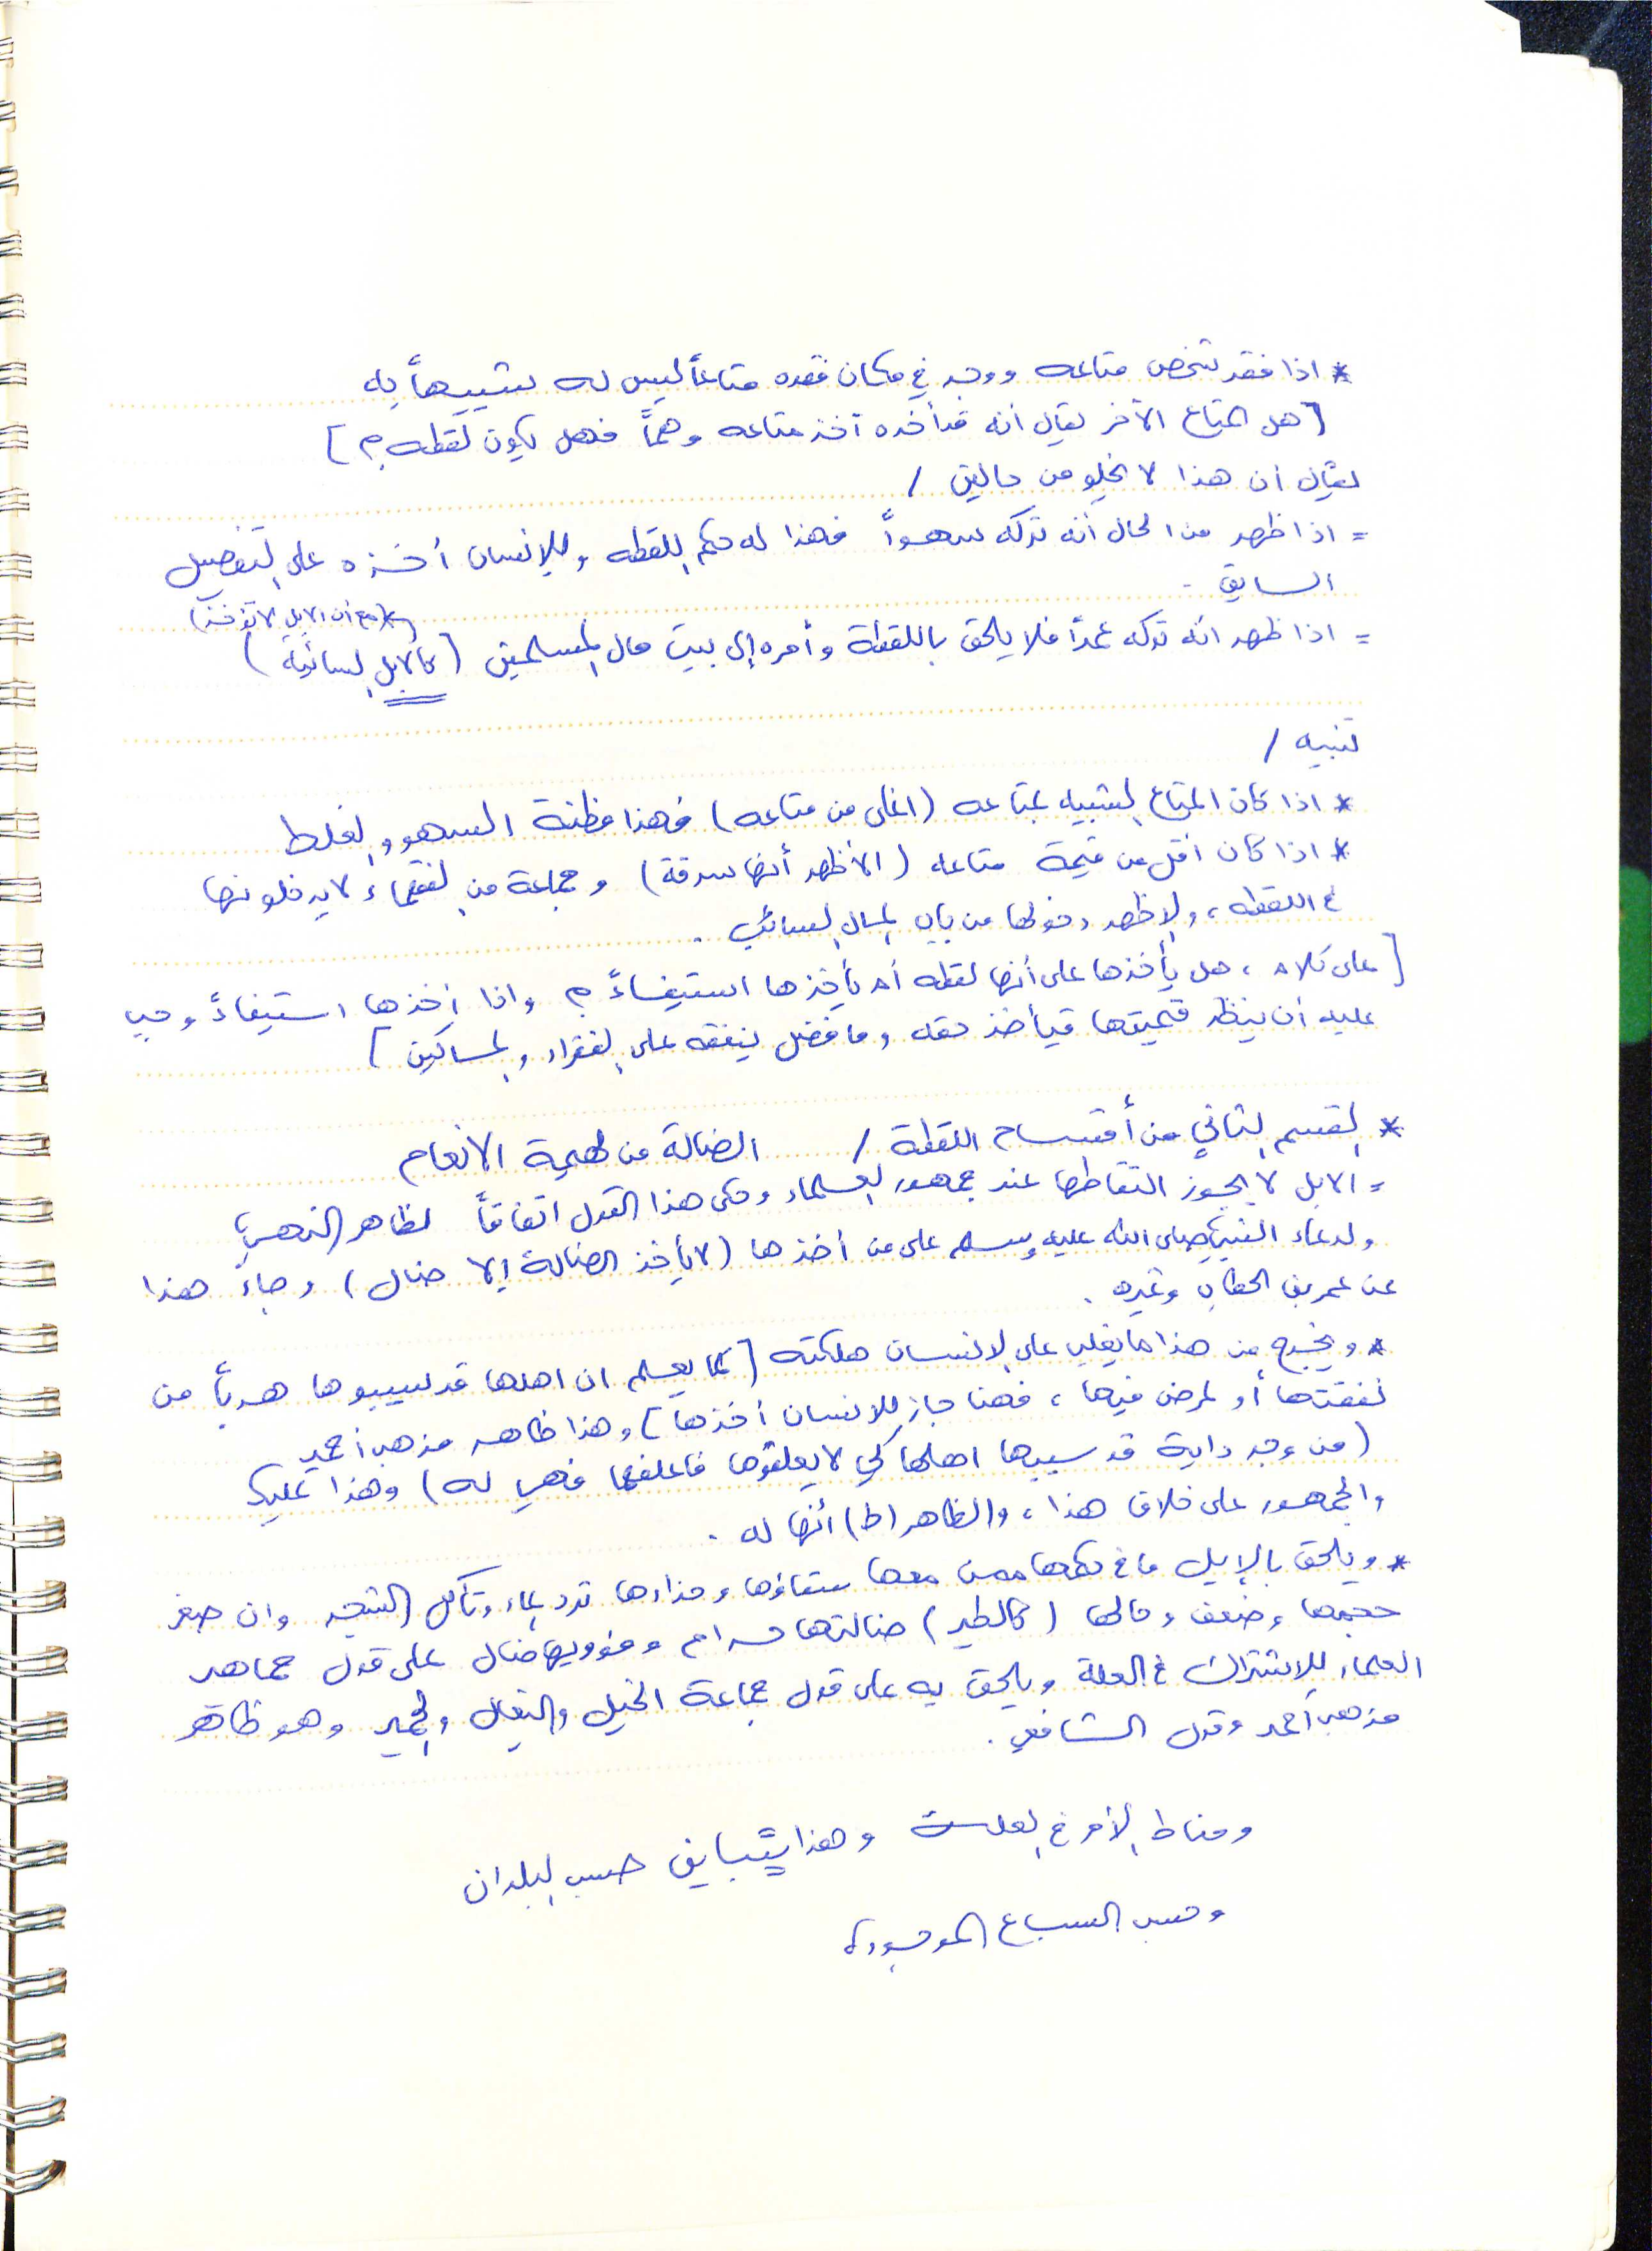 * اذا فقد شخص متاعه ووجد في مكان فقده متاعاً ليس له شبيهاً به
[ هل المتاع الآخر يقال أنه قد أخذه آخذ متاعه وهماً فهل يكون لقطه ؟ ]
يقال ان هذا لا يخلو من حالين /
= اذا ظهر من الحال أنه تركه سهواً فهذا له حكم اللقطه وللإنسان أخذه على التفصيل
السابق .
(* مع أن الابل لا تؤخذ)
= اذا ظهر انه تركه عمداً فلا يلحق باللقطة وأمره إلى بيت مال المسلمين ( كالابل السائبة )
تنبيه /
* اذا كان المتاع الشبيه بمتاعه (اغلى من متاعه) فهذا مظنة السهو والغلط
* اذا كان اقل من قيمة متاعه ( الأظهر أنها سرقة) وجماعة من الفقهاء لا يدخلونها
في اللقطه ، والاظهر دخولها من باب المال السائب .
[ على كلام ، هل يأخذها على أنها لقطه أم يأخذها استيفاءً ؟ واذا أخذها استيفاءً وجب
عليه أن ينظر قيمتها فيأخذ حقه وما فضل ينفقه على الفقراء والمساكين ]
* القسم الثاني من أقسام اللقطة / الضالة من بهيمة الانعام
= الابل لا يجوز التقاطها عند جمهور العلماء وحكى هذا القول اتفاقاً لظاهر النهي
ولدعاء النبي صلى الله عليه وسلم على من أخذها ( لا يأخذ الضالة إلا ضال ) وجاء هذا
عن عمر بن الخطاب وغيره .
* ويخرج من هذا ما يغلب على الانسان هلكته [ كما يعلم ان اهلها قد سيبوها هرباً من
نفقتها أو لمرض فيها ، فهنا جاز للانسان أخذها ] وهذا ظاهر مذهب أحمد
( من وجد دابة قد سيبها اهلها كي لا يعلفوها فاعلفها فهي له ) وهذا تمليك
والجمهور على خلاف هذا ، والظاهر (ط) أنها له .
* ويلحق بالإبل ما في حكمها ممن معها سقاؤها وحذاءها ترد الماء وتأكل الشجر وان صغر
حجمها وضعف وحالها ( كالطير ) ضالتها حرام ومؤويها ضال على قول جماهير
العلماء للاشتراك في العلة ويلحق به على قول جماعة الخيل والبغال والحمير وهو ظاهر
مذهب أحمد وقول الشافعي .
ومناط الأمر في العلة وهذا يتباين حسب البلدان
وحسب السباع الموجودة